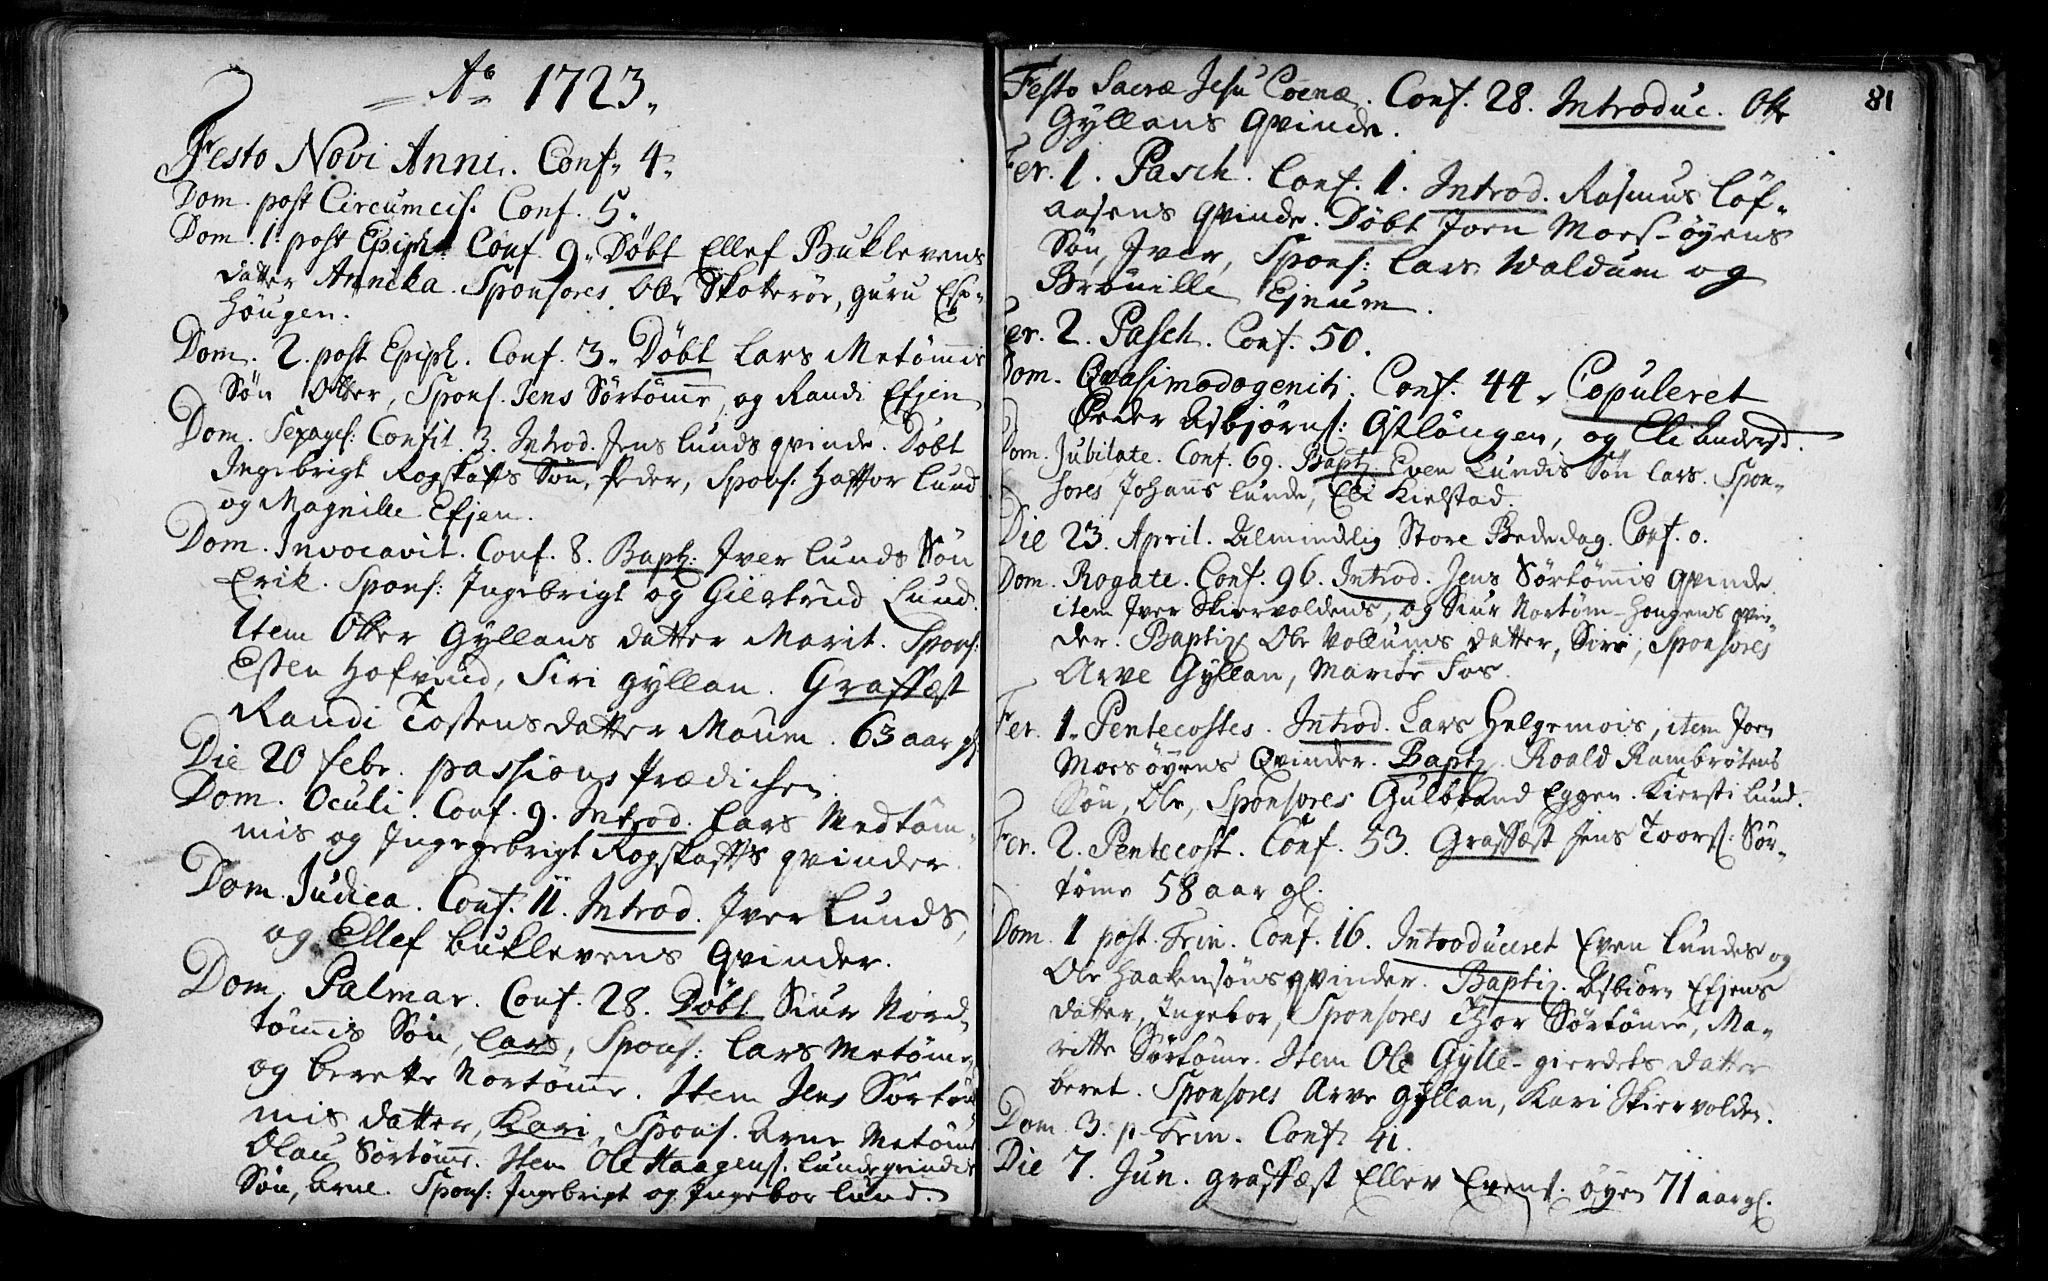 Aº 1723.
Festo Novi Anni. Conf. 4.
Dom. post Circumcis. Conf. 5.
Dom. 1. post Epiph. Conf. 9. Døbt Ellef Buklevens
datter Annika. Sponsores Ole Skotterøe, guru Esp-
höugen.
Dom. 2. post Epiph. Conf. 3. Døbt Lars Metömmis
Søn Otter, Spons. Jens Sörtömme, og Randi Efjen
Dom. Sexages: Confit. 3. Introd. Jens Lunds qvinde. Døbt
Ingebrigt Rogskafts Søn, Peder, Spons: Haftor Lund
og Magnille Efjen.
Dom. Invocavit. Conf. 8. Bapt: Iver Lunds Søn
Erik. Spons: Ingebrigt og Giertrud Lund.
Item Otter Gyllans datter Marit. Spons:
Esten Hofvind, Siri gyllan. Graffæst
Randi Tostensdatter Moum. 63 aar gl.
Die 20 febr. passions Prædichen.
Dom. Oculi. Conf. 9. Introd. Lars Medtöm-
mis og Ingegebrigt Rogskafts qvinder.
Dom. Judica. Conf. 11. Introd. Iver Lunds,
og Ellef buklevens qvinder.
Dom. Palmar. Conf. 28. Døbt Siur Nord-
tömmis Søn, Lars, Spons: Lars Metöme,
og berette Nortömme. Item Jens Sörtöm-
mis datter, Kari, Spons. Arne Metömme
Olau Sörtömme. Item Ole Haagens. Lundegrindes
Søn, Arne. Spons: Ingebrigt og Ingebor Lund.
81
Festo Sacræ Jesu Coenæ. Conf. 28. Introduc. Ott
Gyllans qvinde.
Fer. 1. Pasch. Conf. 1. Introd. Rasmus Löf-
aasens qvinde. Døbt Joen Moes-øyens
Søn, Iver, Spons: Lars Waldum og
Brönille Ejnum.
Fer. 2. Pasch. Conf. 50.
Dom. Qvasimodogeniti. Conf. 44. Copuleret
Peder Asbjørns: Östlöngen, og Eli Andersd.
Dom. Jubilate. Conf. 69. Bapt. Even Lundis Søn Lars. Spon-
sores Johans Lunde, Eli Kielstad.
Die 23. April. Almindelig Store Bededag. Conf. 0.
Dom. Rogate. Conf. 96. Introd. Jens Sörtömmis qvinde
item Iver Skiervoldens, og Siur Nortöm-Hougens qvin-
der. Baptiz. Ole Vollums datter, Siri, Sponsores
Arve Gyllan, Marite Fos.
Fer. 1. Pentecostes. Introd. Lars Helgemois, item Joen
Moesöyens Qvinder. Bapt. Roald Rambrötens
Søn, Ole, Sponsores Gulbrand Eggen. Kiersti Lund.
Fer. 2. Pentecost. Conf. 53. Graffæst Jens Toors: Sör-
töme 58 aar gl.
Dom. 1 post. Trin. Conf. 16. Introduceret Even Lundes og
Ole Haakensöns qvinder. Baptiz. Asbiørn Efjens
datter, Ingebor, Sponsores Thor Sörtömme, Ma-
ritte Sörtöme. Item Ole Gylle-gierdets datter
beret. Sponsores Arve gyllan, Kari Skiervolden.
Dom. 3. p. Trin. Conf. 41.
Die 7. Jun. graffæst Ellev Evens. øyen 71 aar gl.